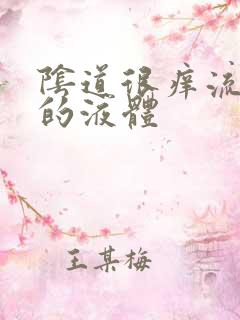 陰道很痒流
的液體
王某梅